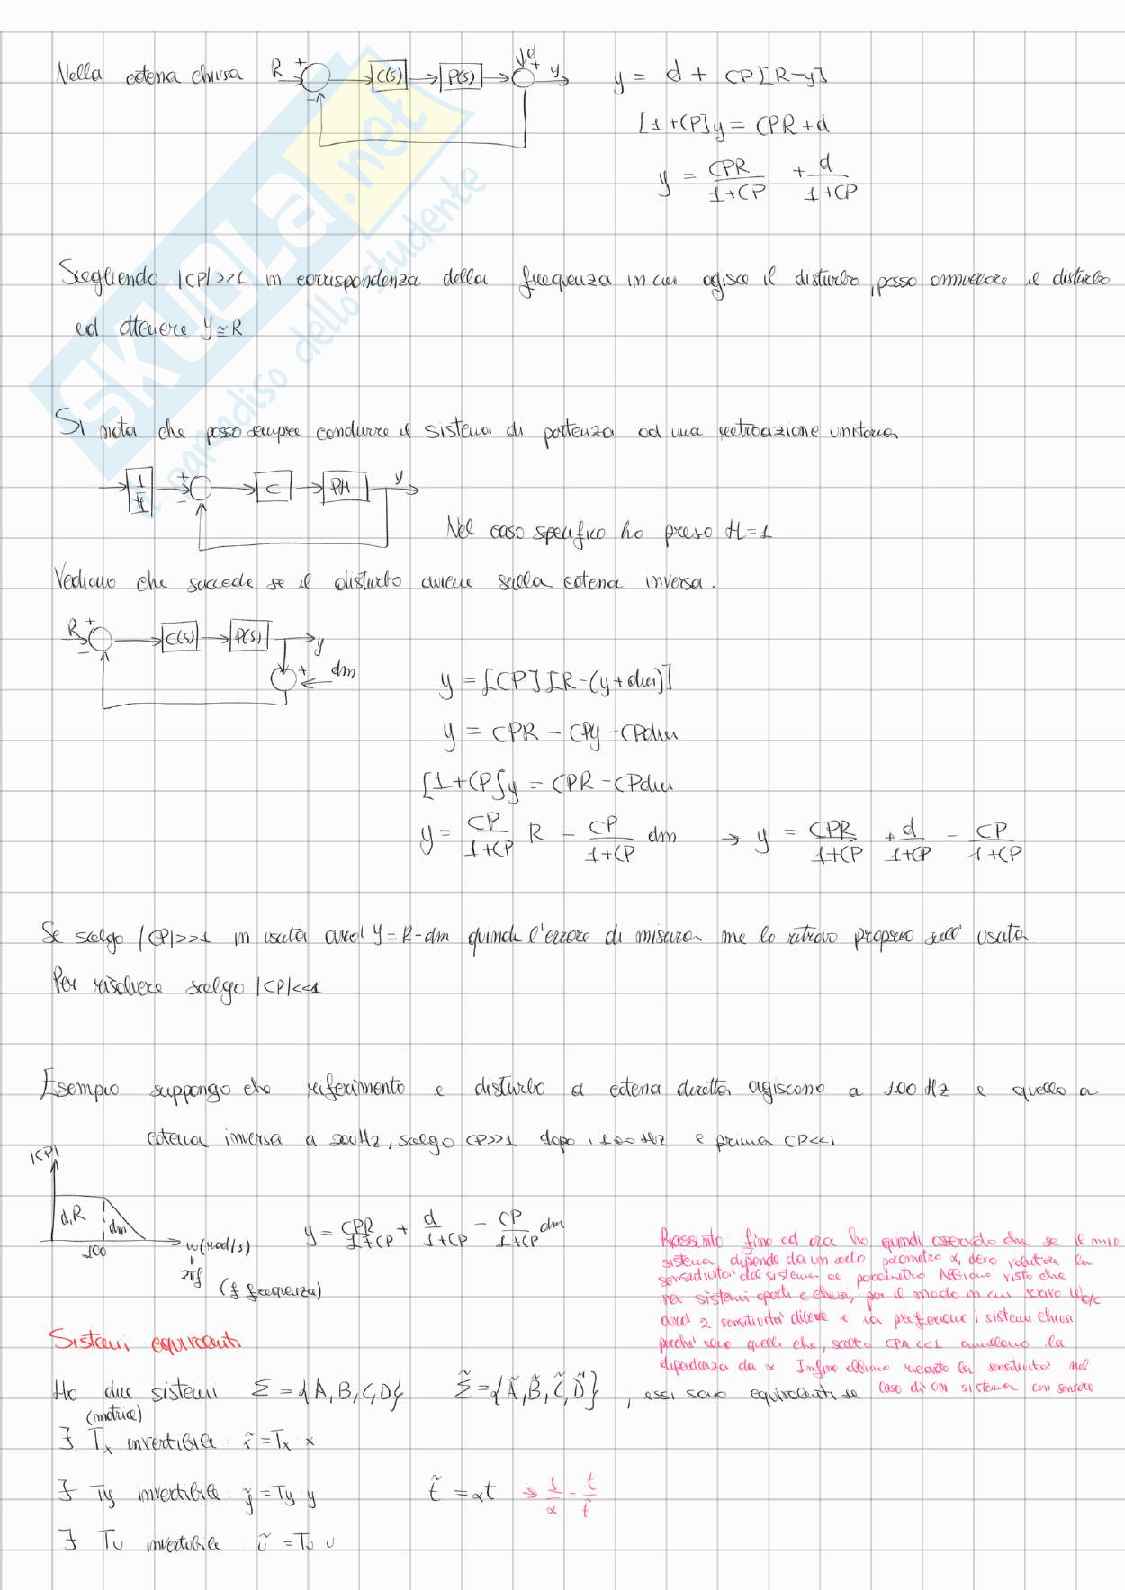 Nella catena chiusa R + - C(s) P(s) d + y y = d + CP[R-y]
[1+CP]y = CPR+d
y = CPR/1+CP + d/1+CP
Scegliendo |CP|>>1 in corrispondenza della frequenza in cui agisce il disturbo, posso annullare il disturbo
ed ottenere y≃R
Si nota che posso sempre condurre il sistema di partenza ad una retroazione unitaria
1/H + - C PH y
Nel caso specifico ho preso H=1
Vediamo che succede se il disturbo avviene sulla catena inversa.
R + - C(s) P(s) y
+ dm
y = [CP][R-(y+dm)]
y = CPR - CPy - CPdm
[1+CP]y = CPR - CPdm
y = CP/1+CP R - CP/1+CP dm → y = CPR/1+CP + d/1+CP - CP/1+CP
Se scelgo |CP|>>1 in uscita avrei y=R-dm quindi l'errore di misura me lo ritrovo proprio sull' uscita
Per risolvere scelgo |CP|<<1
Esempio suppongo che riferimento e disturbo a catena diretta agiscono a 100 Hz e quello a
catena inversa a 200Hz, scelgo CP>>1 dopo 100 Hz e prima CP<<1
|CP|
d,R dm
100 w(rad/s)
2πf
(f frequenza)
y = CPR/1+CP + d/1+CP - CP/1+CP dm
Riassunto fino ad ora ho quindi osservato che se il mio
sistema dipende da un certo parametro α, devo valutare la
sensitivita' del sistema al parametro Abbiamo visto che
tra sistemi aperti e chiusi, per il modo in cui
2 sensitivita' diverse e si preferiscono i sistemi chiusi
perche' sono quelli che, scelto CPH<<1 annullano la
dipendenza da α Infine abbiamo la sensitivita' nel
caso di un sistema con sensore
Sistemi equivalenti
Ho due sistemi Σ = {A,B,C,D} Σ̃ = {Ã,B̃,C̃,D̃} , essi sono equivalenti se
(matrice)
∃ Tx invertibile x̃ = Tx x
∃ Ty invertibile ỹ = Ty y t̃ = αt → 1/α = t/t̃
∃ Tu invertibile ũ = Tu u
SKUOLA.net
paradiso dello studente